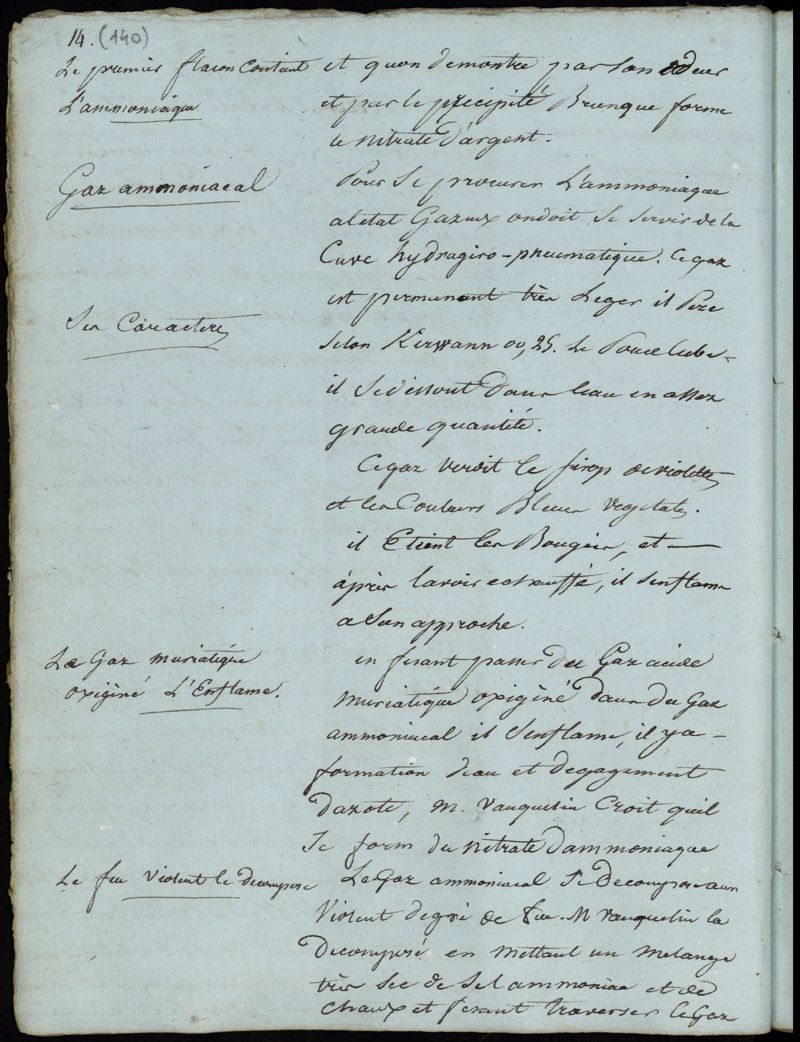 14. (140)
Le premier flacon Contient
L'ammoniaque
et quon demontre par Son odeur
et par le precipité Brun que forme
le nitrate d'argent.
Gaz ammoniacal
Pour Se procurer L'ammoniaque
a letat Gazeux on doit Se Servir de la
Cuve hydragiro-pneumatique. Ce gaz
est permanent très Leger il Pese
Selon Kirwann 00,25. Le Pouce Cube-
il Se dissout Dans leau en assez
grande quantité.
Ses Caracteres
Ce gaz verdit le sirop de violettes
et les Couleurs Bleues vegetales.
il Etient les Bougies, et —
après lavoir echauffé, il Senflame
a Son approche.
Le Gaz muriatique
oxigèné L'Enflame.
en fesant passer du Gaz acide
muriatique oxigèné dans du Gaz
ammoniacal il Senflame, il ya -
formation deau et degagement
Dazote, m. Vauquelin Croit quil
Se form du nitrate Dammoniaque
Le feu violent le decompose
Le Gaz ammoniacal Se Decompose a un
Violent degré de feu. M Vauquelin la
Decomposé en mettant un melange
très Sec de Sel ammoniac et de
Chaux et fesant traverser le Gaz